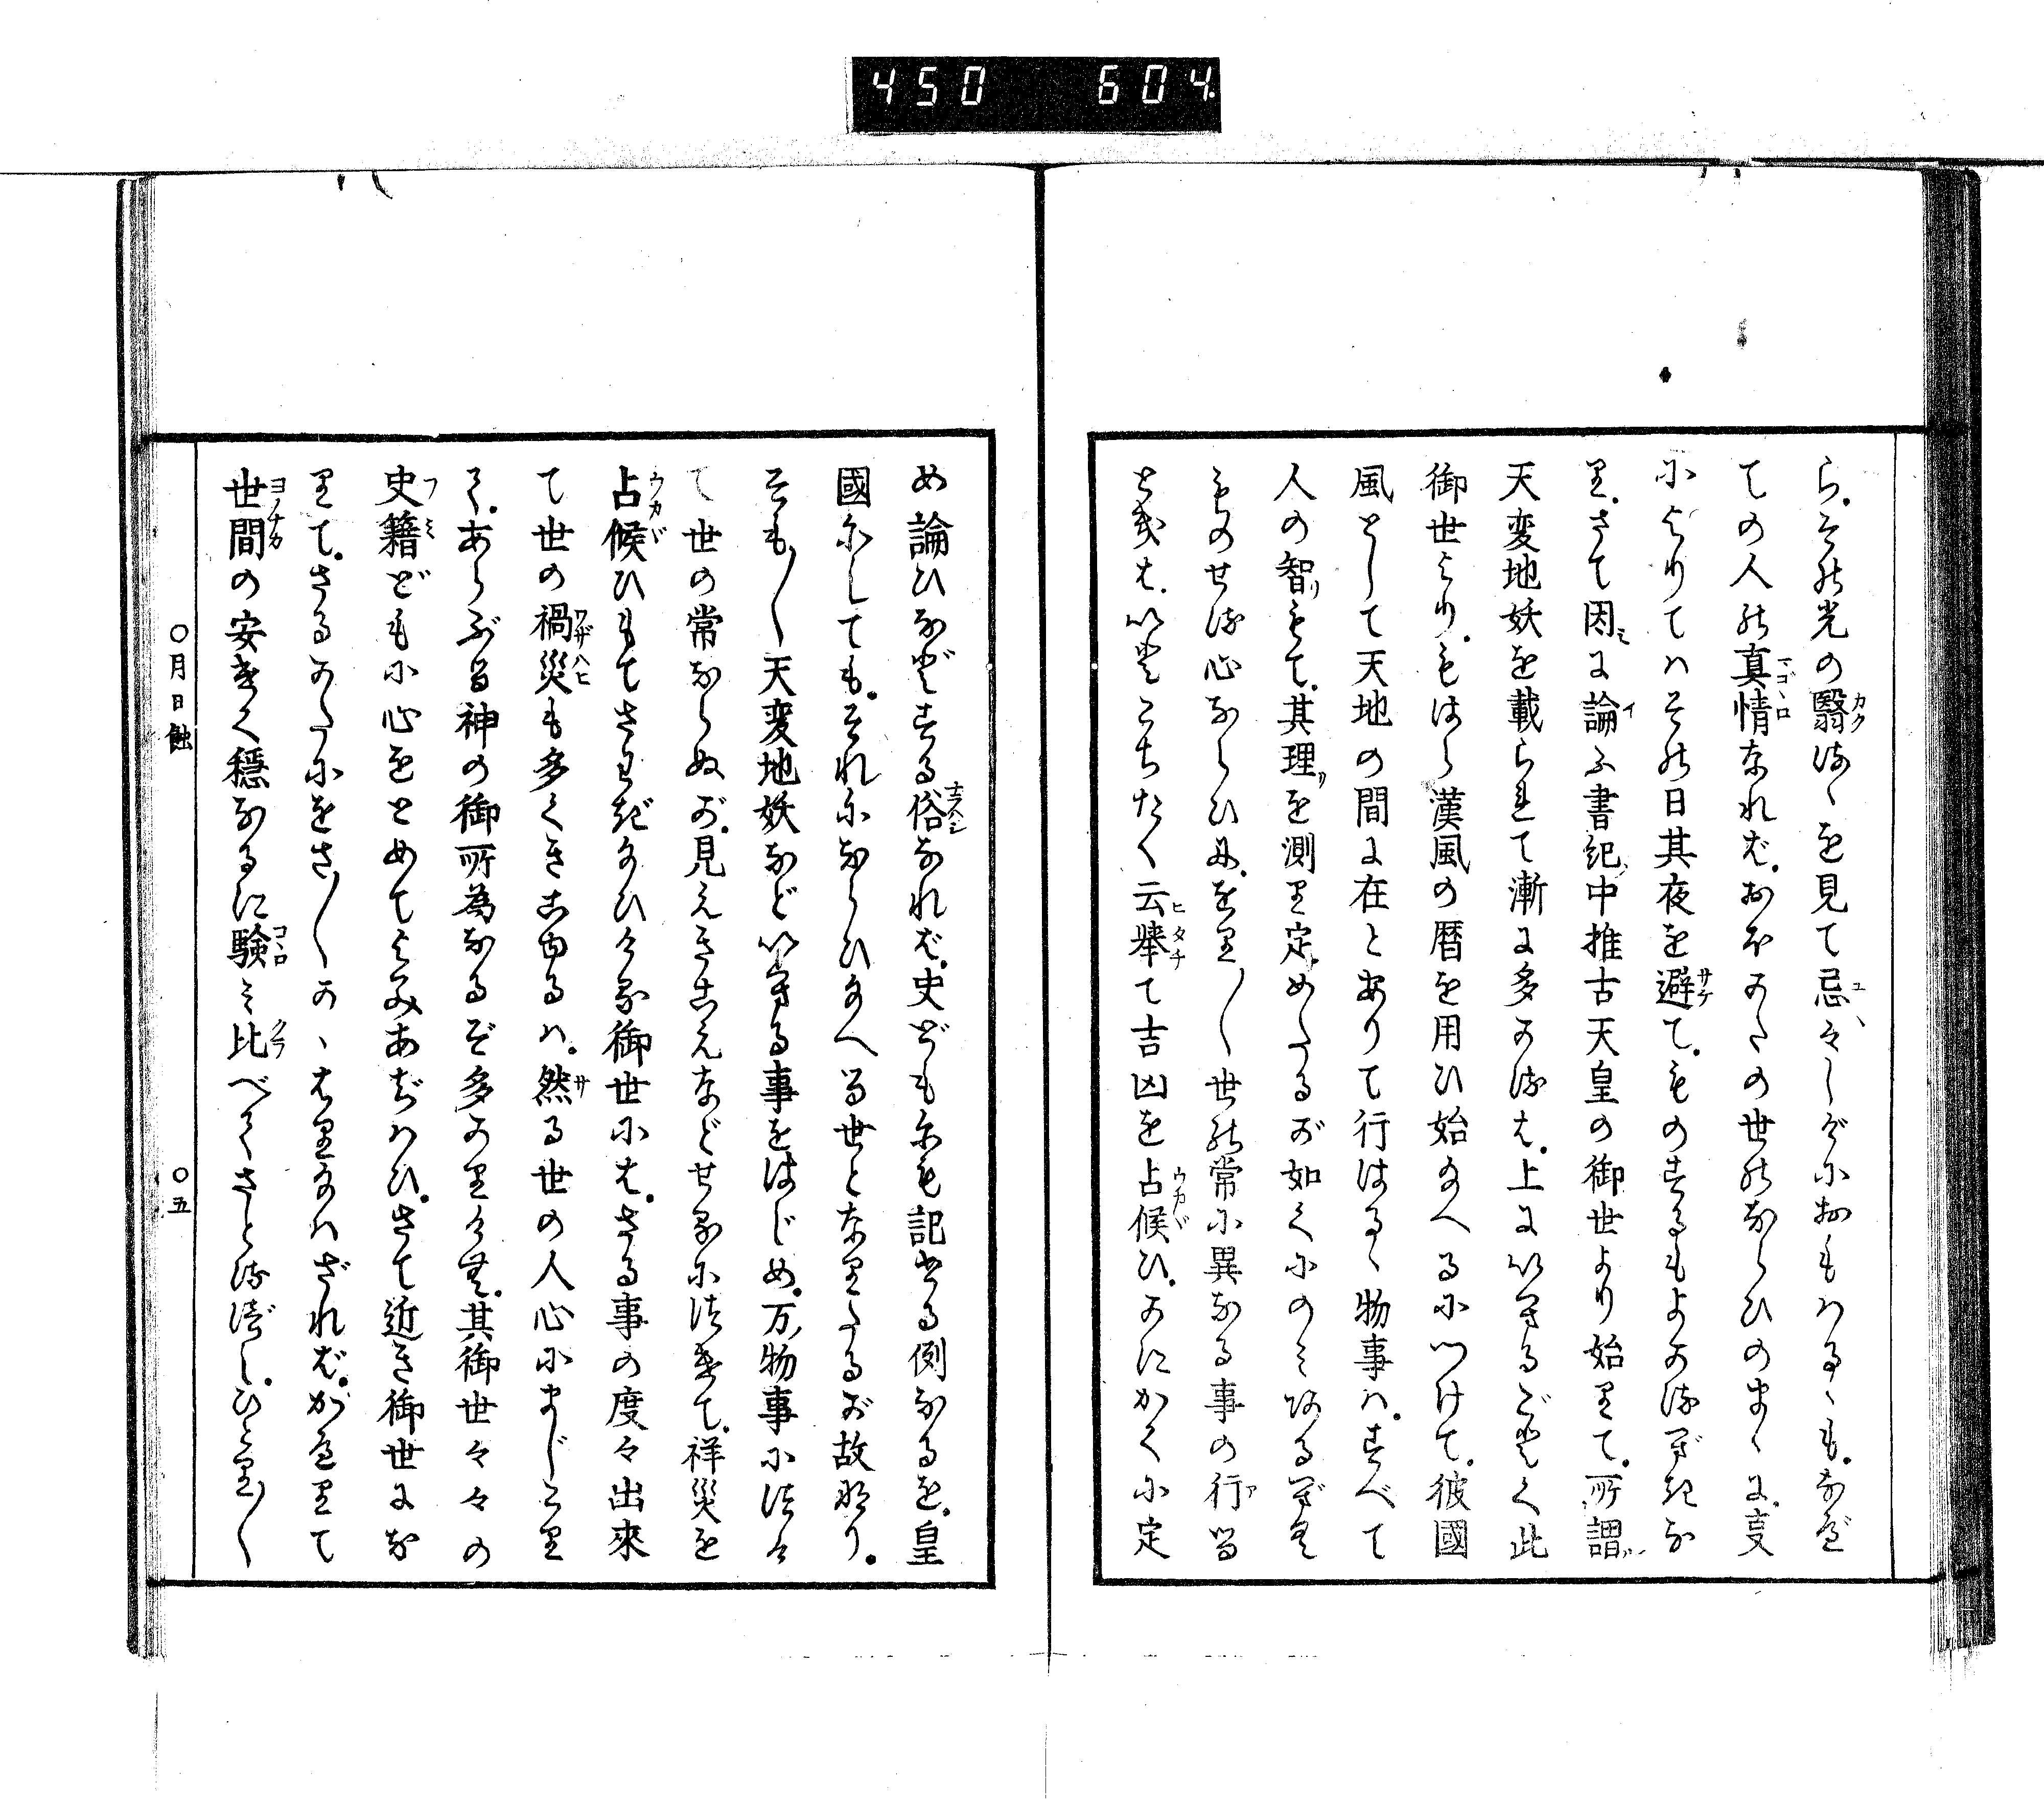 450 604
ら。その光の翳るゝを見て忌々しげにおもはるゝも。なべ
ての人の真情なれば。おほかたの世のならひのまゝに。夏
によりてはその日其夜を避て。ものするもよかるべきな
り。さて因に論ふ書紀中推古天皇の御世より始りて。所謂
天変地妖を載られて漸に多かるは。上にいへるごとく此
御世より。もはら漢風の暦を用ひ始給へるにつけて。彼國
風として天地の間に在とありて行はるゝ物事は。すべて
人の智もて。其理を測り定めたるが如くにのみあるべき
ものせる心ならひに。をり〱世の常に異なる事の行る
ときは。いとこちたく云挙て吉凶を占候ひ。かにかくに定
め論ひなどする俗なれば。史どもにも記せる例なるを。皇
國にしても。それにならひ給へる世となりたるが故なり。
そも〱天変地妖などいへる事をはじめ。万物事につけ
て世の常ならぬが。見えきこえなどせるにつきて。祥災を
占候ひもてさわぎ給ひける御世には。さる事の度々出來
て世の禍災も多くきこゆるは。然る世の人心にまじこり
て。あらぶる神の御所為なるぞ多かりける。其御世々々の
史籍どもに心をとめてよみあぢはひ。さて近き御世にな
りて。さるかたにをさ〱かゝはり給はざれば。がへりて
世間の安けく穏なるに験み比べてさとるべし。ひとり〱
○月日蝕 ○五